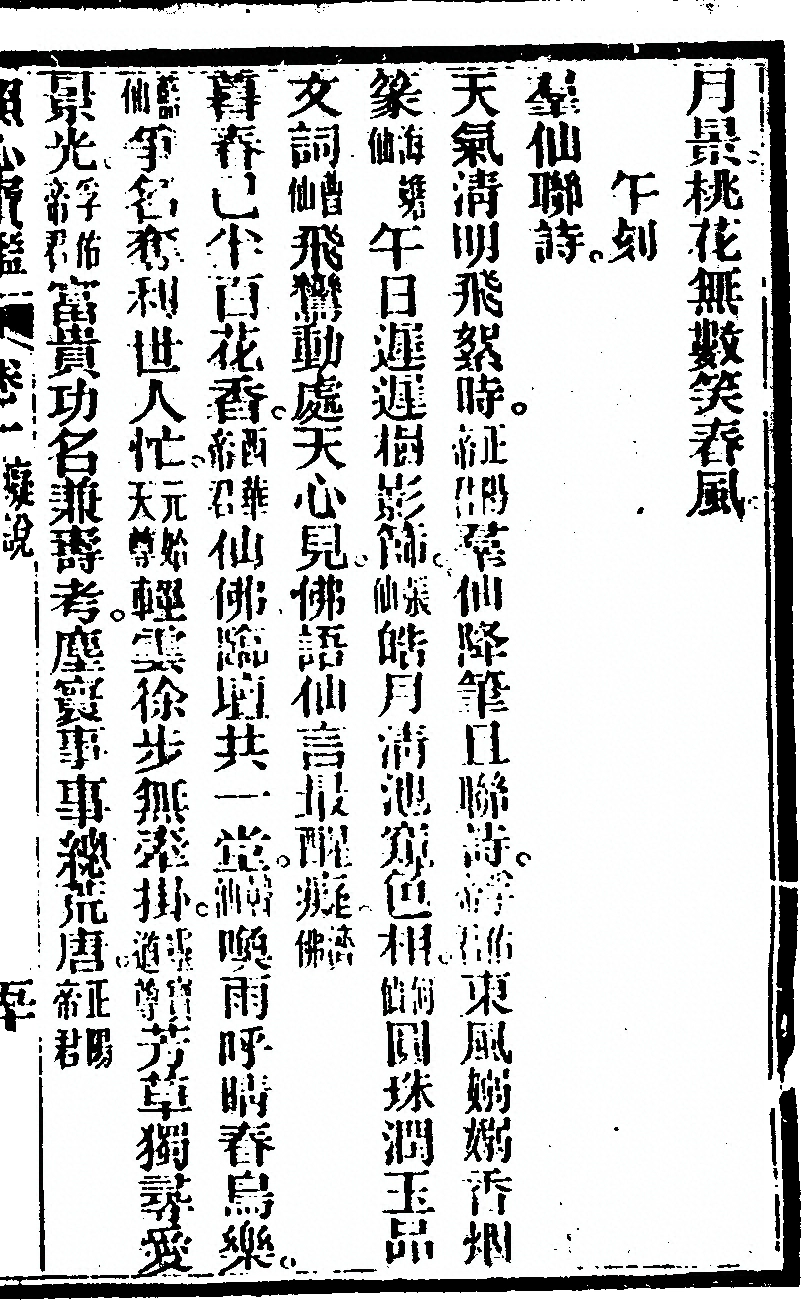 月景桃花無數笑春風。
午刻
羣仙聯詩。
天氣清明飛絮時。正陽帝君羣仙降筆且聯詩。孚佑帝君東風嫋嫋香烟
篆海蟾仙午日遲遲樹影篩。張仙皓月清池窺色相。何仙圓珠潤玉品
文詞曹仙飛鸞動處天心見。佛語仙言最醒癡。濟佛
暮春已半百花香。西華帝君仙佛臨壇共一堂。韓仙喚雨呼晴春鳥樂。
藍仙爭名奪利世人忙。元始天尊輕雲徐步無牽掛。靈寶道尊芳草獨尋愛
景光。孚佑帝君富貴功名兼壽考。塵寰事事總荒唐。正陽帝君
卷一 癡說